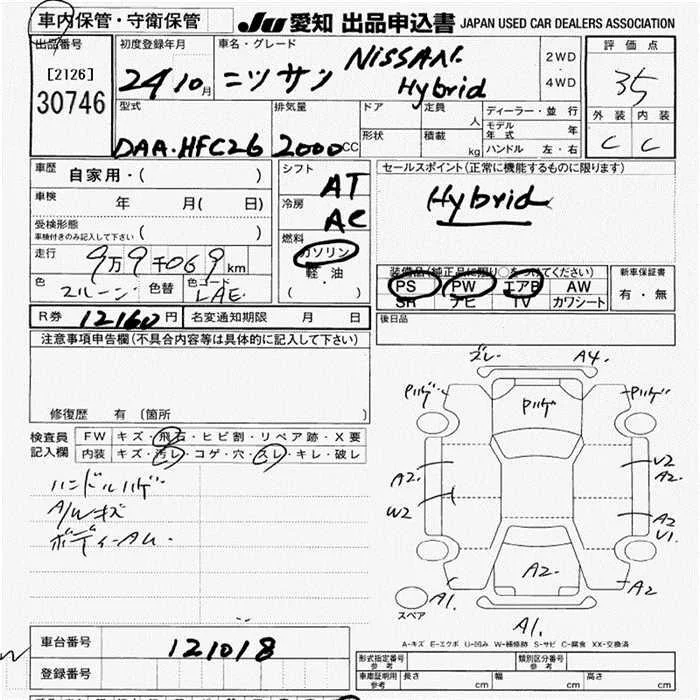 車内保管・守衛保管
JU 愛知 出品申込書 JAPAN USED CAR DEALERS ASSOCIATION
出品番号
[2126]
30746
初度登録年月
24 10月
車名・グレード
ニッサン NISSAN
Hybrid
2WD
4WD
評価点
35
外装 内装
C C
型式
DAA.HFC26
排気量
2000CC
ドア
定員
人
形状
積載
kg
ディーラー・並行
モデル年式 年
ハンドル 左・右
車歴
自家用・( )
車検
年 月( 日)
受検形態
車検付きのみ記入して下さい( )
走行
9万9千069km
色
色替
色コード
LAE
シフト
AT
冷房
AC
燃料
ガソリン
軽・油
( ・ )
セールスポイント(正常に機能するものに限ります)
Hybrid
装備品(純正品に限り○をつけてください)
PS PW エアB AW
SR ナビ TV カワシート
新車保証書
有・無
R券 12160円
名変通知期限 月 日
後日品
注意事項申告欄(不具合内容等は具体的に記入して下さい)
修復歴 有 〔箇所
検査員
記入欄
FW キズ・飛石・ヒビ割・リペア跡・X要
内装 キズ・汚レ・コゲ・穴・スレ・キレ・破レ
ハンドルハゲ
A/Wキズ
ボディーAU.
ズレ A4.
Pハゲ Pハゲ Pハゲ
A2. U2
A2.
W2 A2
U1.
A2. A2
A1.
スペア
A1.
A-キズ E-エクボ U-凹み W-補修跡 S-サビ C-腐食 XX-交換済
車台番号 121018
登録番号
形式指定番号
参考
類別区分番号
参考
車庫証明用
参考
長さ cm 幅 cm 高さ cm